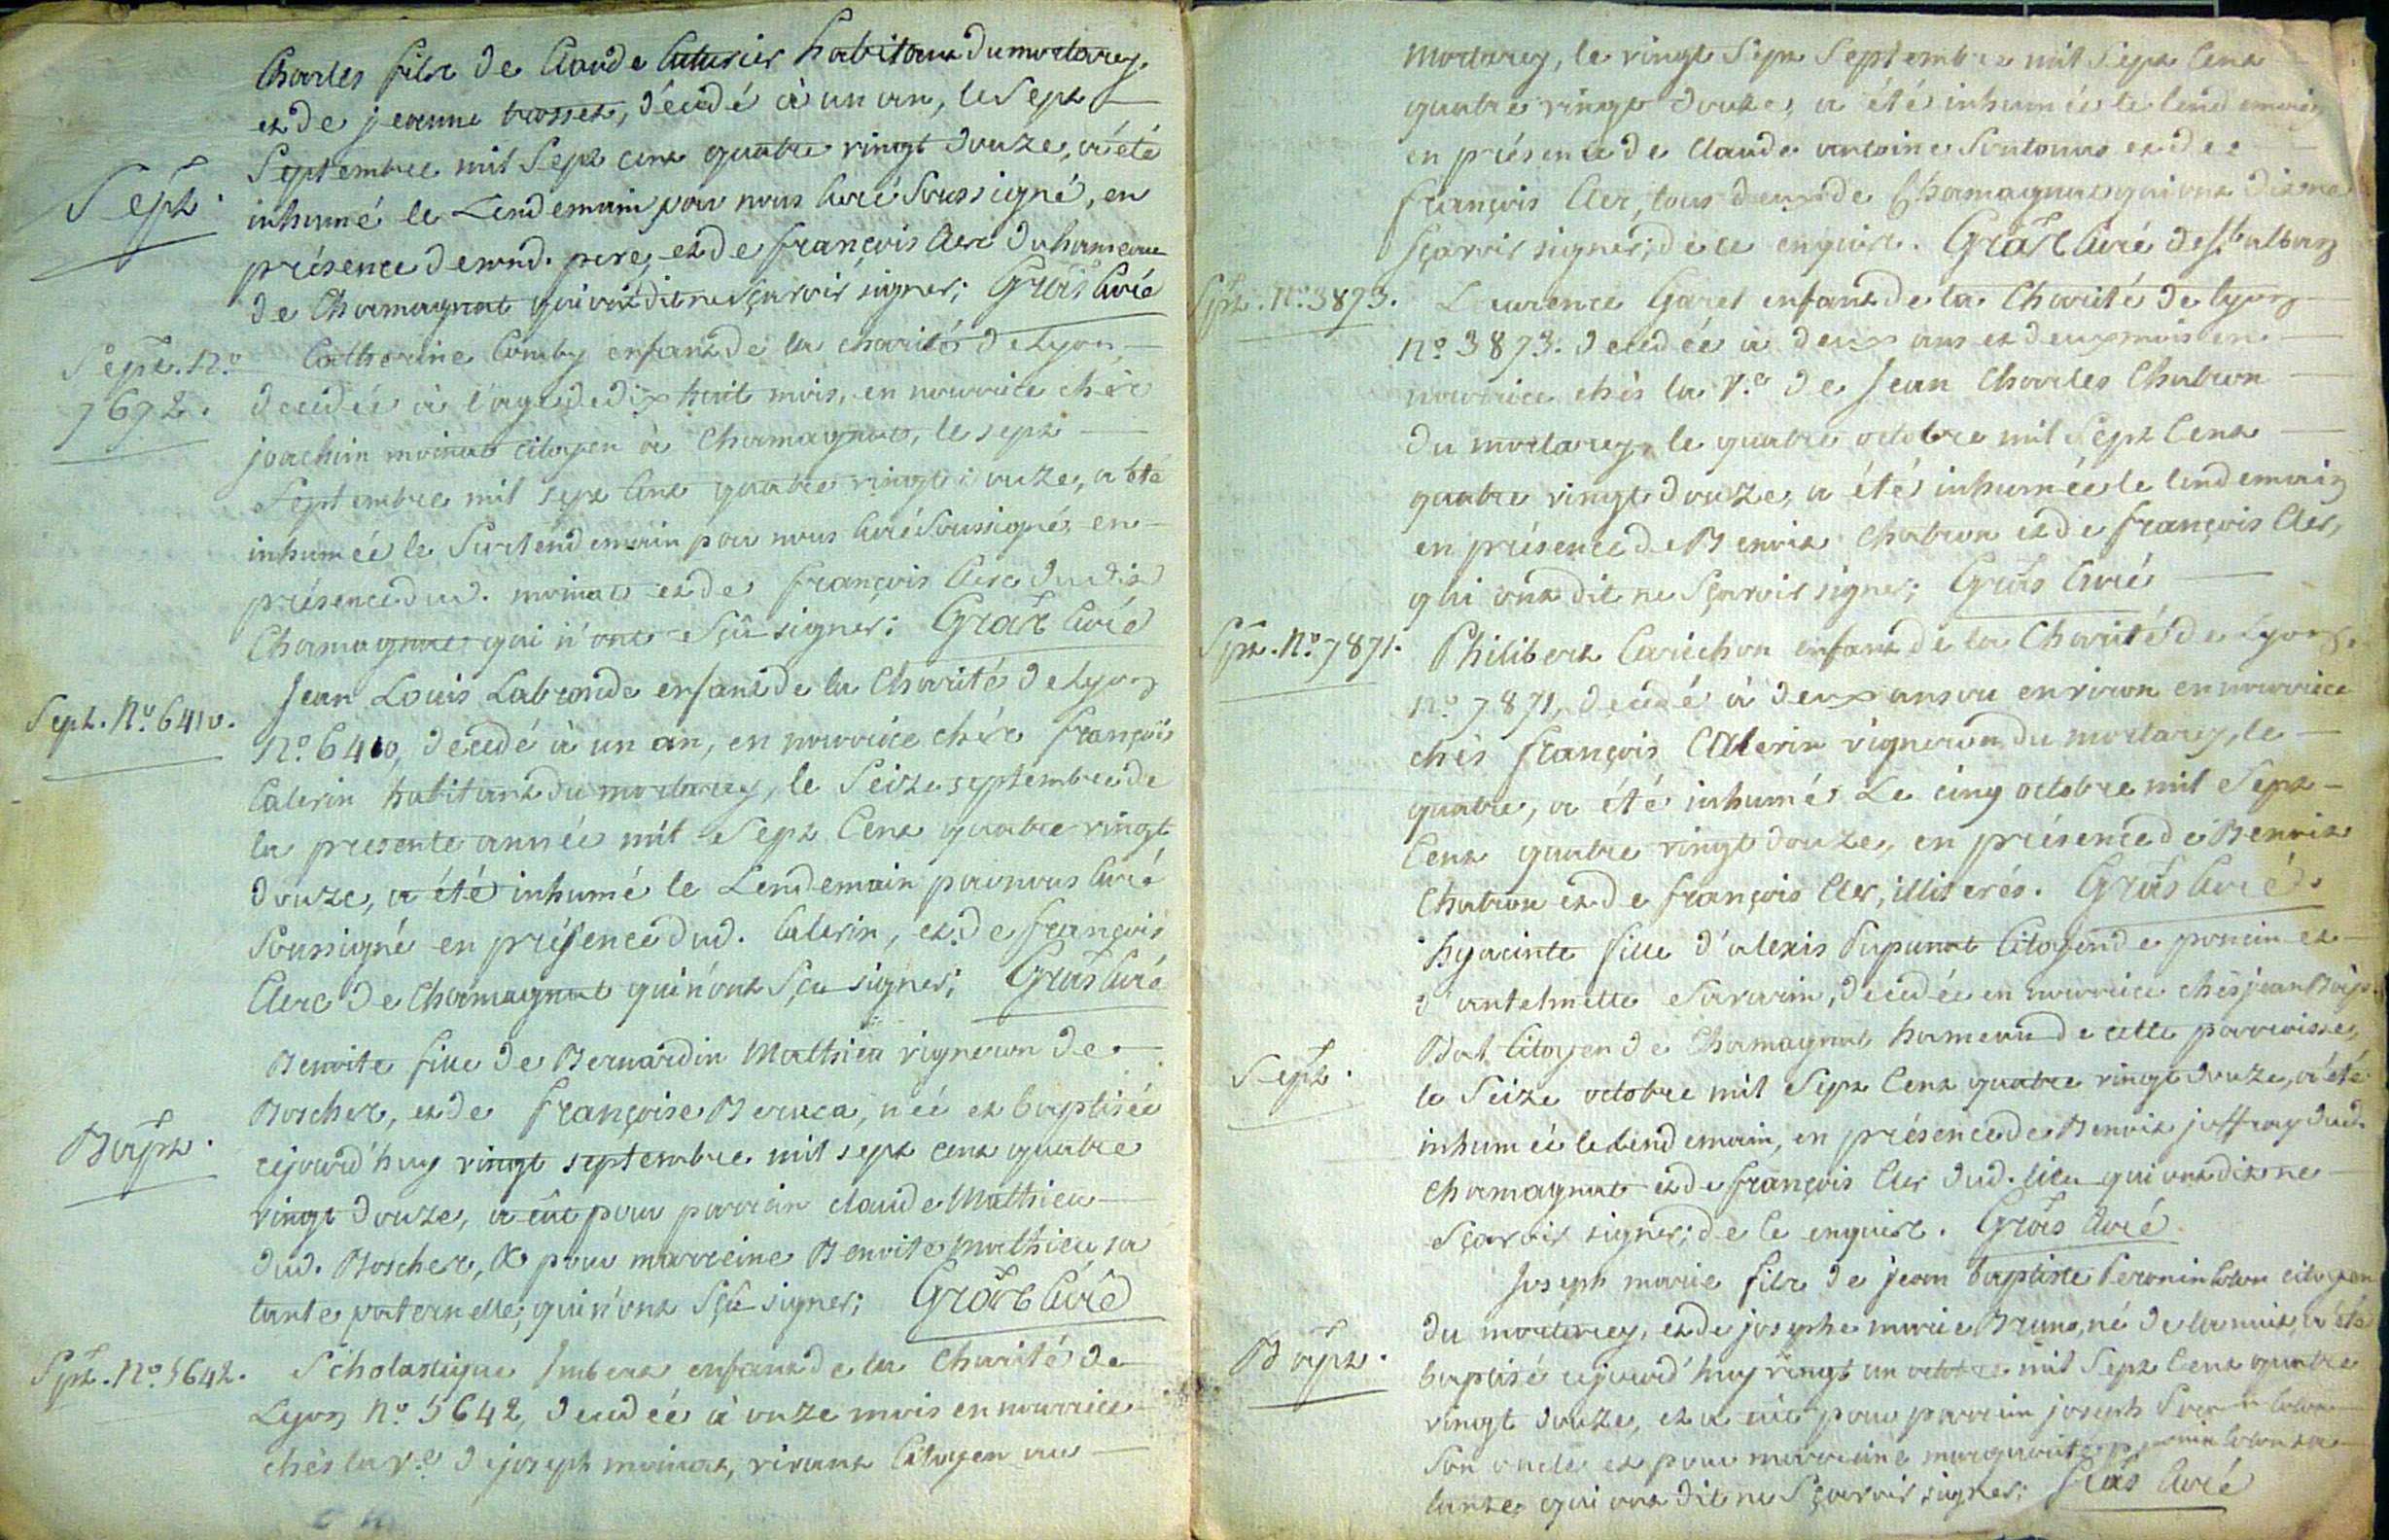 Charles fils de Claude Cuturier habitant du mortarey
et de jeanne brosset, décédé à un an, le Sept
Sept.
Septembre mil Sept cent quatre vingt douze, a été
inhumé le Lendemain par nous Curé Soussigné, en
présence de sond. pere, et de françois Clerc du hameau
de Chamagnat qui ont dit ne sçavoir signer; Gras Curé
Sept. N.o
7672.
Catherine Comby enfant de la charité de Lyon
décédée à l'age de dix huit mois, en nourrice chés
joachim moinat citoyen à Chamagnat, le sept
Septembre mil sept Cent quatre vingt douze, a été
inhumée le Surlendemain par nous Curé Soussigné, en
présence dud. moinat et de françois Clerc dudit
Chamagnat qui n'ont Sçû signer; Gras Curé
Sept. N.o 6410.
Jean Louis Labronde enfant de la Charité de Lyon
N.o 6410, décédé à un an, en nourrice chés françois
Calerin habitant du mortarey, le Seize septembre de
la presente année mil Sept Cent quatre vingt
douze, a été inhumé le Lendemain par nous Curé
Soussigné en présence dud. Calerin, et de françois
Clerc de Chamagnat qui n'ont Sçu signer; Gras Curé
Bapt.
Benoite fille de Bernardin Mathieu vigneron de
Boscher, et de françoise Beruca, née et baptisée
cejourd'huy vingt septembre mil sept cent quatre
vingt douze, a eût pour parrain claude Mathieu
dud. Boscher, & pour marreine Benoite Mathieu, sa
tante paternelle, qui n'ont Sçû signer; Gras Curé
Spt. N.o 5642.
Scholastique Imbert enfant de la Charité de
Lyon N.o 5642, décédée à onze mois en nourrice
chès la v.e de joseph moinat, vivant Citoyen au
mortarey, le vingt Sept Septembre mil Sept Cent
quatre vingt douze, a été inhumée le lendemain
en présence de Claude antoine et de
françois Cler, tous deux de Chamagnat qui ont dit ne
sçavoir signer; de ce enquist. Gras Curé de St. alban
Spt. N.o 3873.
Laurence Garet enfant de la Charité de Lyon
N.o 3873. décédée à deux ans et deux mois en
nourrice chès la V.e de Jean Charles Chatron
du mortarey, le quatre octobre mil Sept Cent
quatre vingt douze, a été inhumée le lendemain
en présence de Benoit Chatron et de françois Cler,
qui ont dit ne Sçavoir signer; Gras Curé
Spt. N.o 7871.
Philibert Carichon enfant de la Charité de Lyon
N.o 7871, décédé à deux ans ou environ en nourrice
chès françois CAlerin vigneron du mortarey, le
quatre, a été inhumé Le cinq octobre mil Sept
Cent quatre vingt douze, en présence de Benoit
Chatron et de françois Cler, illiterés. Gras Curé.
Sept.
hyacinte fille d'alexis Pupunat Citoyen de poncin et
d'antelmette Savarin, décédée en nourrice chès jean Bap.
Bat Citoyen de Chamagnat hameau de cette parroisse,
le Seize octobre mil Sept Cent quatre vingt douze, a été
inhumée le Lendemain, en présence de Benoit joffray dud.
Chamagnat et de françois Cler dud. lieu qui ont dit ne
Sçavoir signer; de ce enquist. Gras Curé
Bapt.
Joseph marie fils de jean baptiste Peronin Colon citoyen
du mortarey, et de josephe marie Bruno, né de la nuit, a été
baptisé cejourd'huy vingt un octobre mil Sept Cent quatre
vingt douze, et a eût pour parrain joseph Peronin Colon
Son oncle et pour marreine marguerite peronin Colon sa
tante, qui ont dit ne Sçavoir signer; Gras Curé